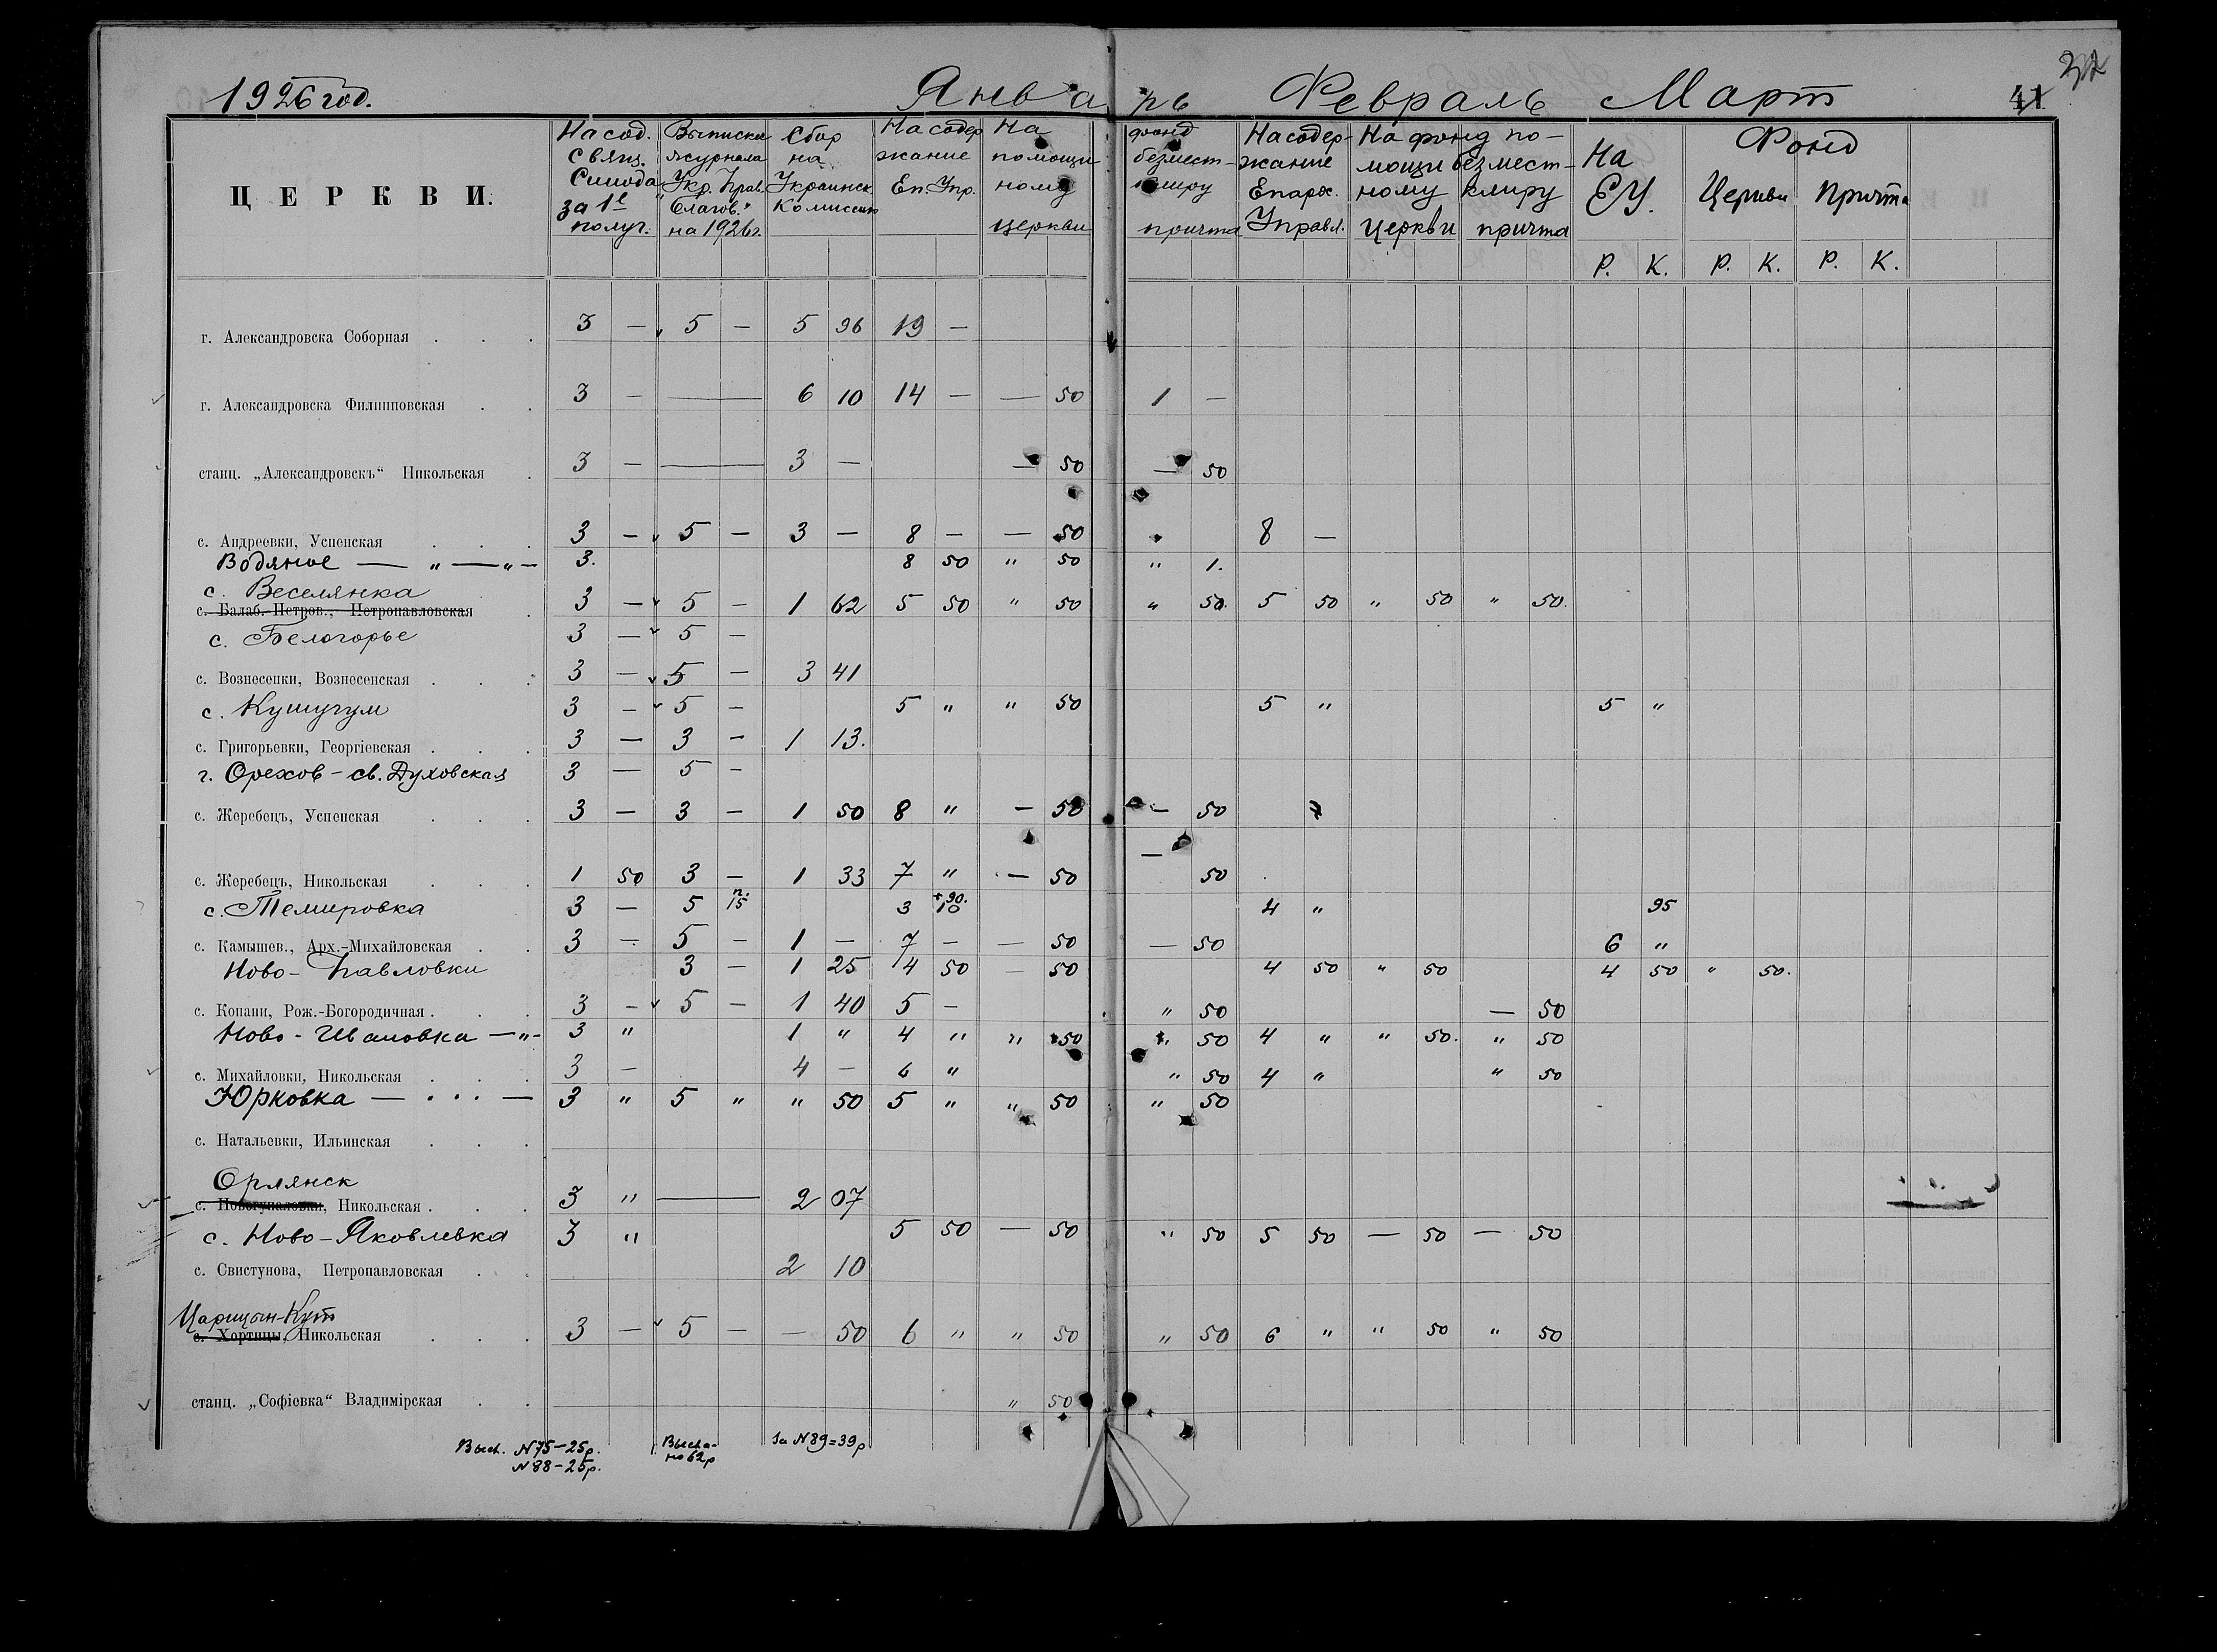 1926 год. Январь Февраль Март 41
ЦЕРКВИ.
На сод. Свящ. Синода за 1е полуг.
Выписка журнала „Укр. Прав. Благов.“ на 1926 г.
Сбор на Украинск. Комиссию
На содержание Еп. Упр.
На помощи ному церкви
фонд безмест- клиру причта
На содержание Епарх. Управл.
На фонд помощи безместному клиру церкви причта
На ЕУ.
Фонд Церкви Причта
Р. К. Р. К. Р. К.
г. Александровска Соборная . . . 3 — 5 — 5 96 19 —
г. Александровска Филипповская . . 3 — — 6 10 14 — — 50 1 —
станц. „Александровскъ“ Никольская . 3 — — 3 — — 50 — 50
с. Андреевки, Успенская . . . 3 — 5 — 3 — 8 — — 50 „ 8 —
Водяное — „ — „ — 3. 8 50 „ 50 „ 1.
с. Веселянка
с. Балаб.-Петров., Петропавловская . 3 — 5 — 1 62 5 50 „ 50 „ 50. 5 50 „ 50 „ 50.
с. Белогорье 3 — 5 —
с. Вознесенки, Вознесенская . . . 3 — 5 — 3 41
с. Кушугум 3 — 5 — 5 „ „ 50 5 „ 5 „
с. Григорьевки, Георгіевская . . . 3 — 3 — 1 13.
г. Орехов - св. Духовская 3 — 5 —
с. Жеребецъ, Успенская . . . 3 — 3 — 1 50 8 „ — 50 — 50
с. Жеребецъ, Никольская . . . 1 50 3 — 1 33 7 „ — 50 — 50
с. Темировка 3 — 5 п. 15 3 + 90. 10 4 „ 95
с. Камышев., Арх.-Михайловская . . 3 — 5 — 1 — 7 — — 50 — 50 6 „
Ново-Павловки 3 — 1 25 4 50 — 50 4 50 „ 50 4 50 „ 50.
с. Копани, Рож.-Богородичная . . . 3 — 5 — 1 40 5 — „ 50 — 50
Ново-Ивановка — „ - 3 „ 1 „ 4 „ „ 50 „ 50 4 „ „ 50. „ 50
с. Михайловки, Никольская . . . 3 — 4 — 6 „ „ 50 4 „ „ 50
Юрковка — . . . — 3 „ 5 „ „ 50 5 „ „ 50 „ 50
с. Натальевки, Ильинская . . .
Орлянск
с. Новогупаловки, Никольская . . . 3 „ — 2 07
с. Ново-Яковлевка 3 „ 5 50 — 50 „ 50 5 50 — 50 — 50
с. Свистунова, Петропавловская . . 2 10
Царицын-Кут
с. Хортицы, Никольская . . . 3 — 5 — — 50 6 „ „ 50 „ 50 6 „ „ 50 „ 50
станц. „Софіевка“ Владимірская . . „ 50
Высл. N 75 — 25 р. Высла- За N 89 = 39 р
N 88 — 25 р. но 62 р